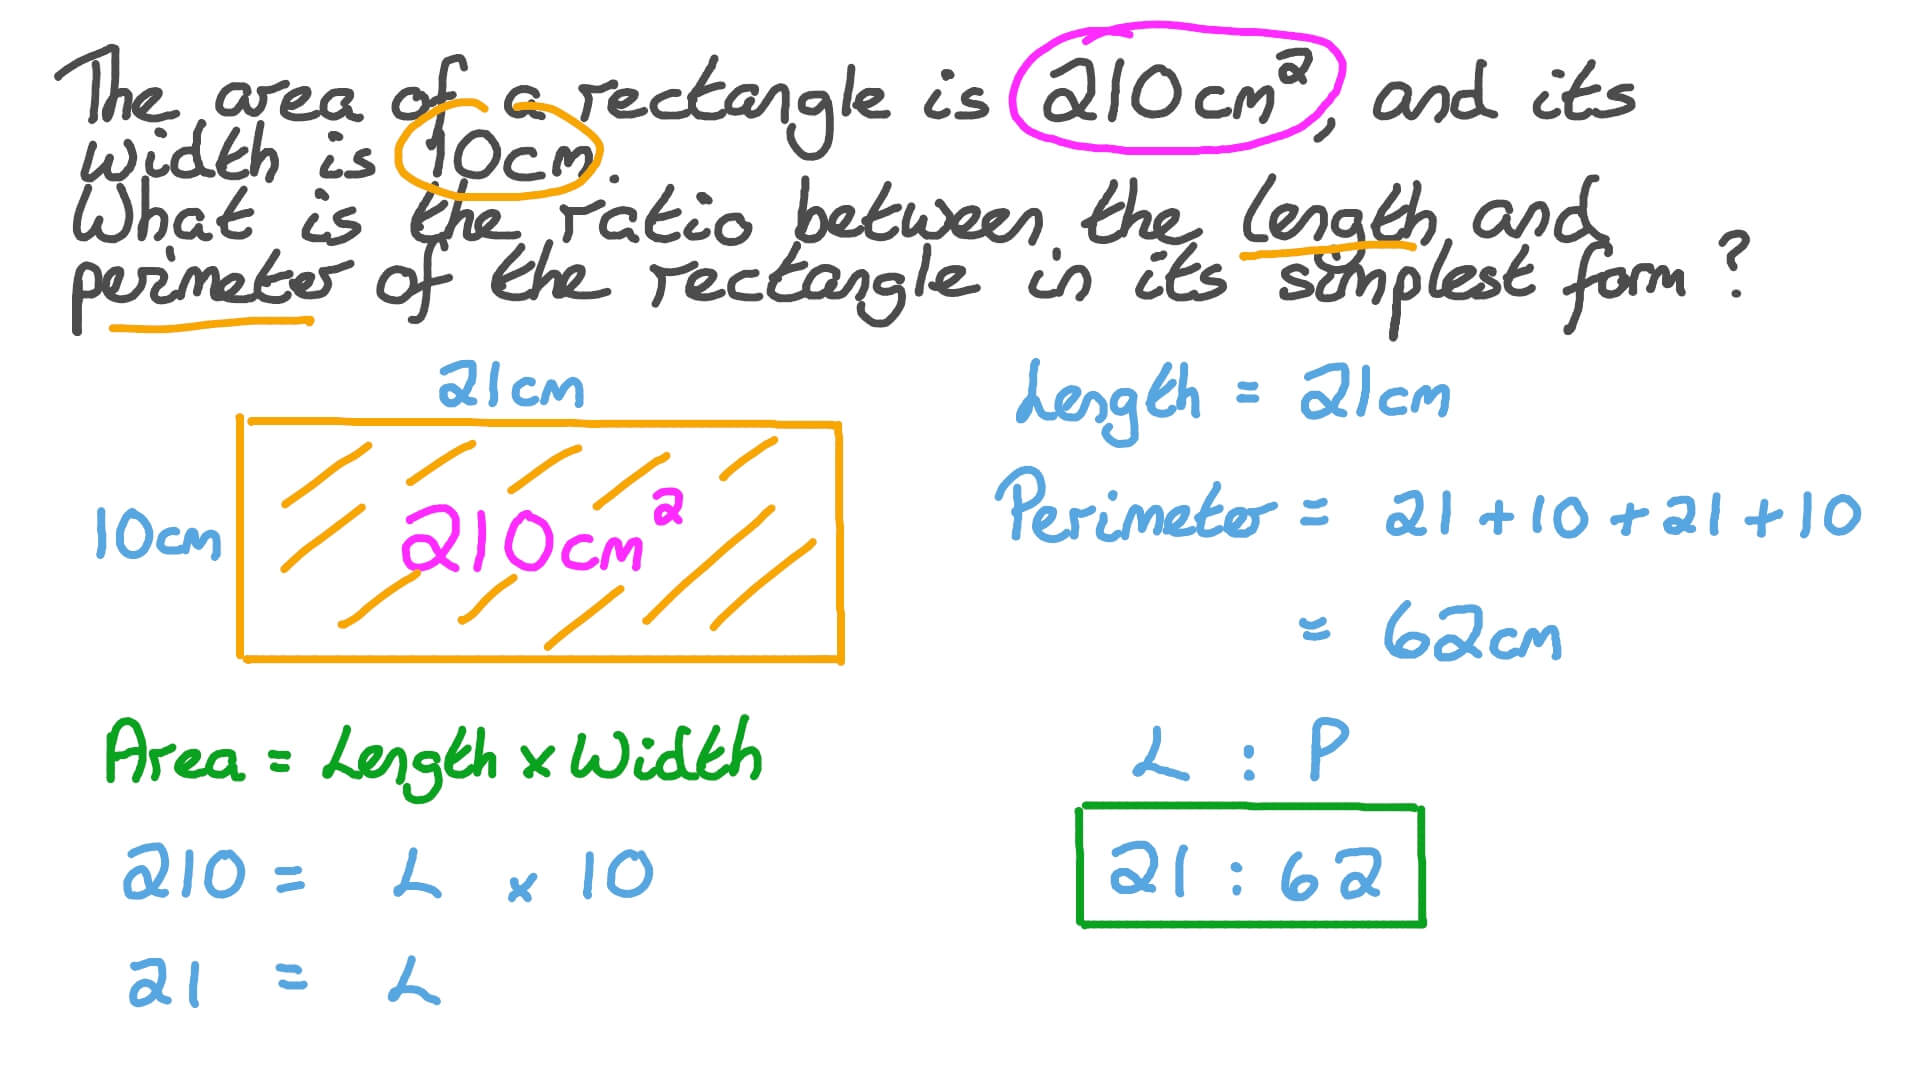 The area of a rectangle is 210cm², and its
width is 10cm.
What is the ratio between the length and
perimeter of the rectangle in its simplest form?
21cm
10cm
210cm²
Area = Length x Width
210 = L x 10
21 = L
Length = 21cm
Perimeter = 21 + 10 + 21 + 10
= 62cm
L : P
21 : 62